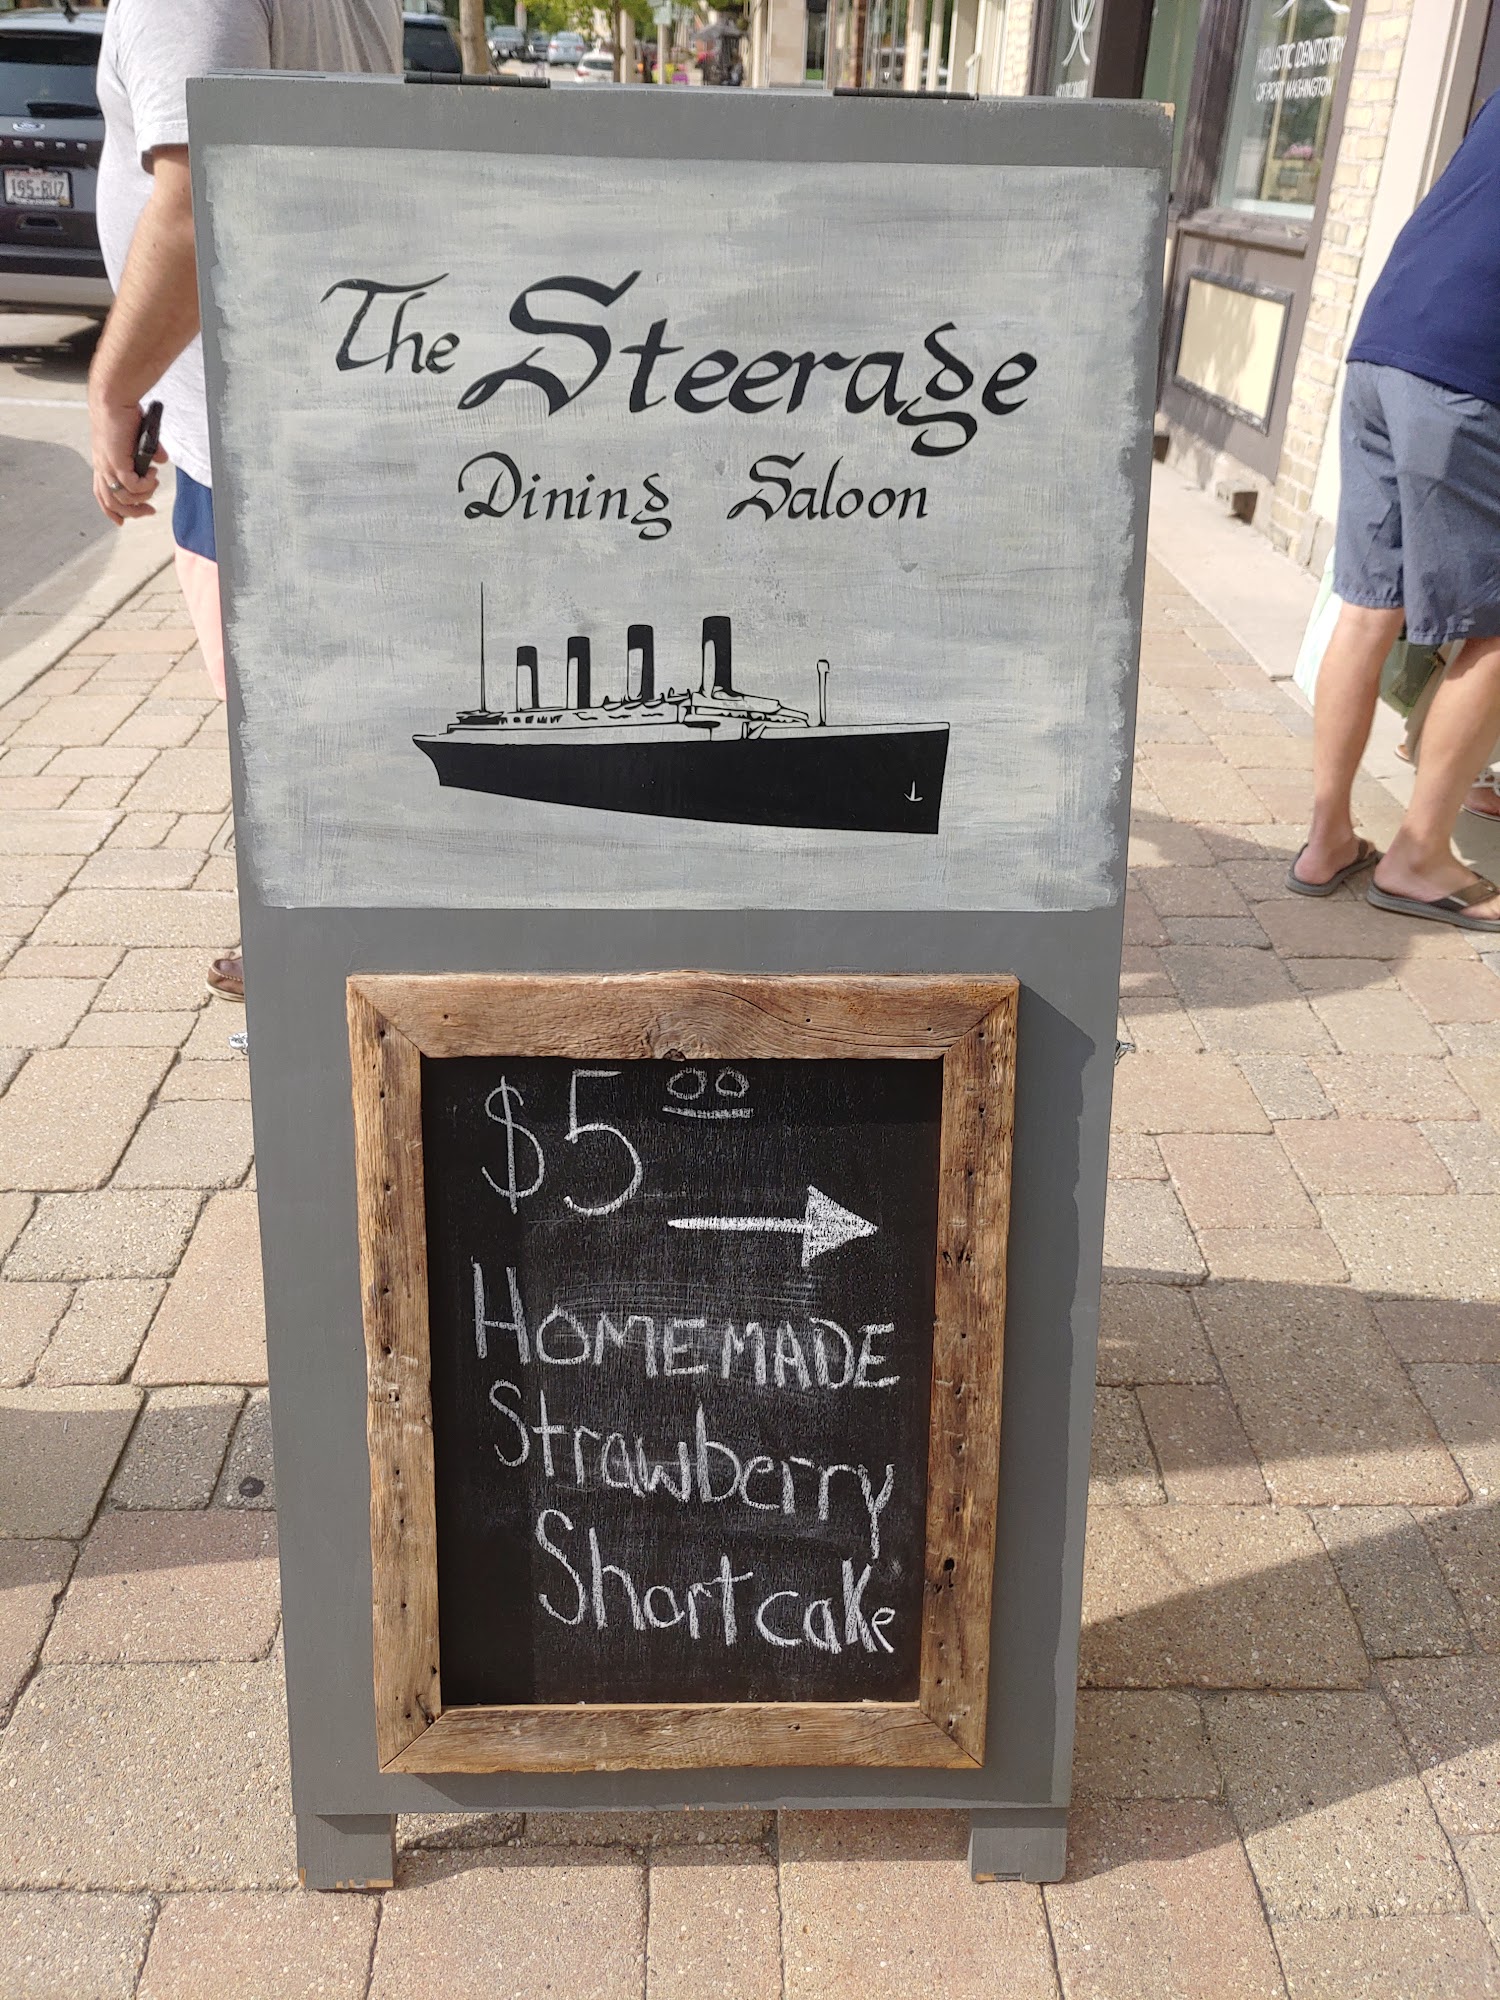 The Steerage
Dining Saloon
$5 00
HOMEMADE
Strawberry
Shortcake
HOLISTIC DENTISTRY
OF PORT WASHINGTON
195-RUZ